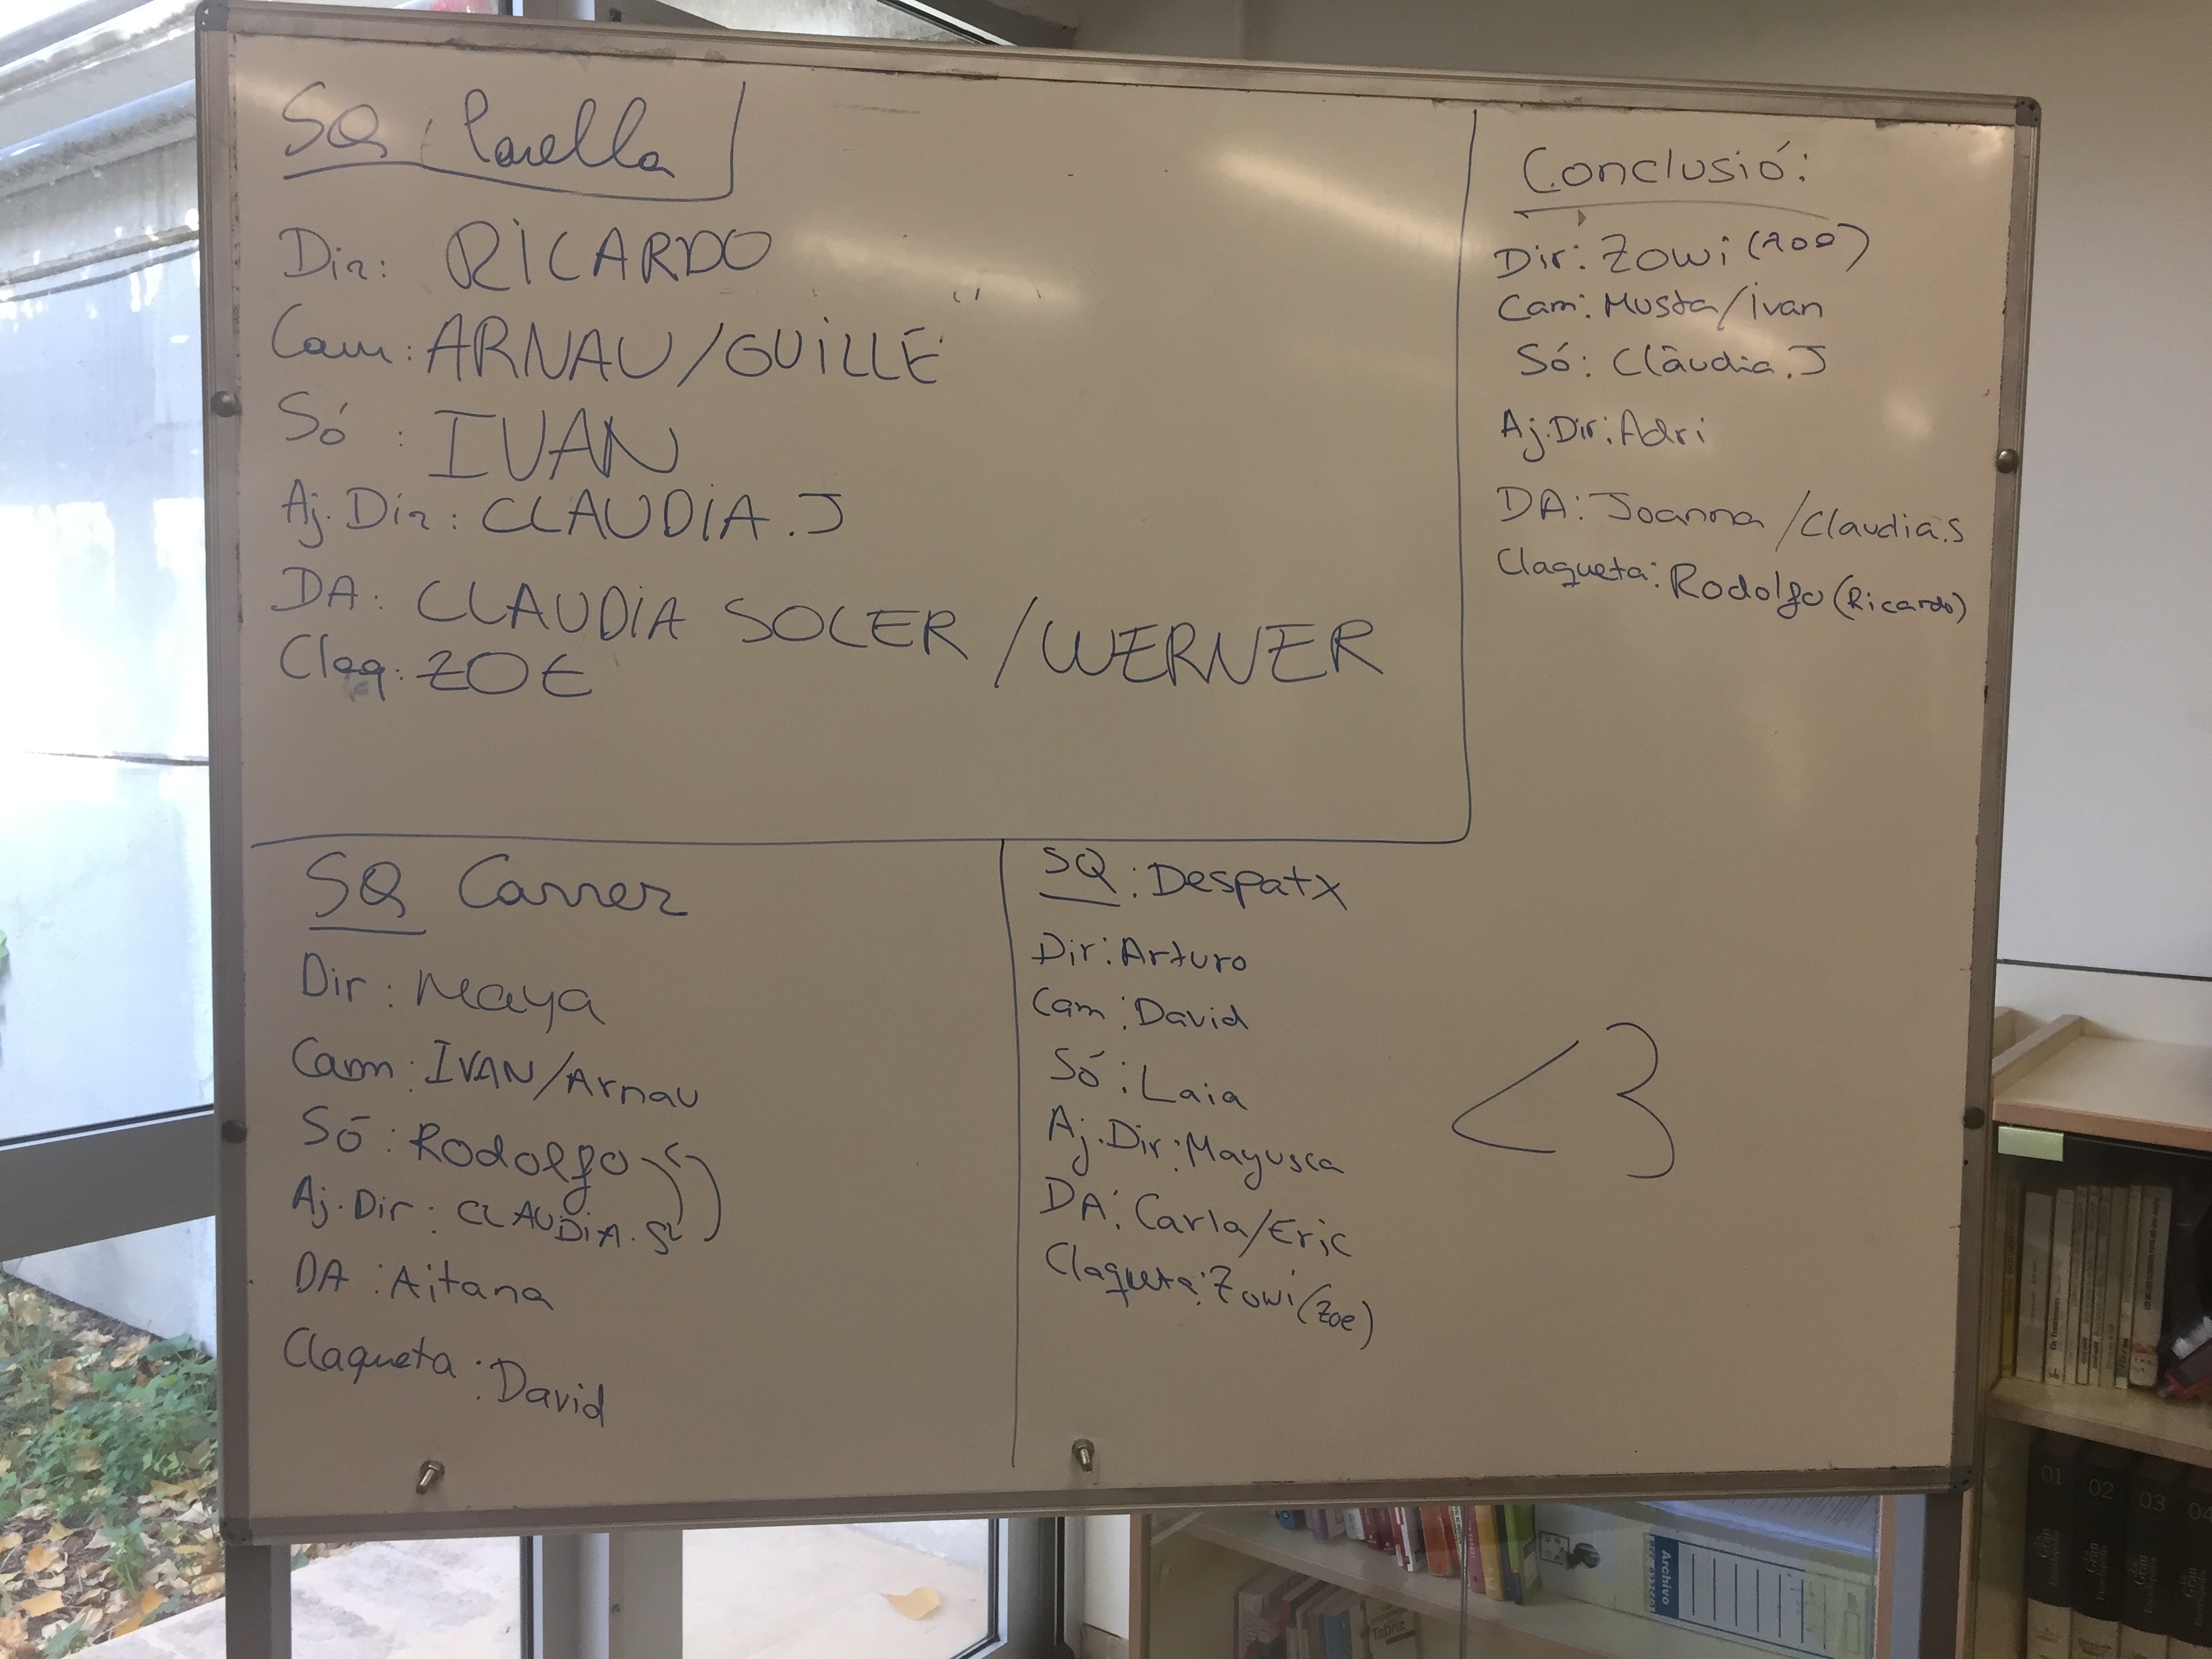 SQ Parella
Dir: RICARDO
Cam: ARNAU/GUILLE
Só : IVAN
Aj. Dir: CLAUDIA.J
DA: CLAUDIA SOLER /WERNER
Claq: ZOE
Conclusió:
Dir: Zowi (zoe)
Cam: Musta/Ivan
Só: Clàudia.J
Aj.Dir: Adri
DA: Joanna /Claudia.S
Claqueta: Rodolfo (Ricardo)
SQ Carrer
Dir: Maya
Cam: IVAN/Arnau
Só: Rodolfo
Aj. Dir: CLAUDIA.S
DA: Aitana
Claqueta: David
SQ: Despatx
Dir: Arturo
Cam: David
Só: Laia
Aj.Dir: Mayusca
DA: Carla/Eric
Claqueta: Zowi (Zoe)
<3
Archivo
Tabriz
01
02
03
04